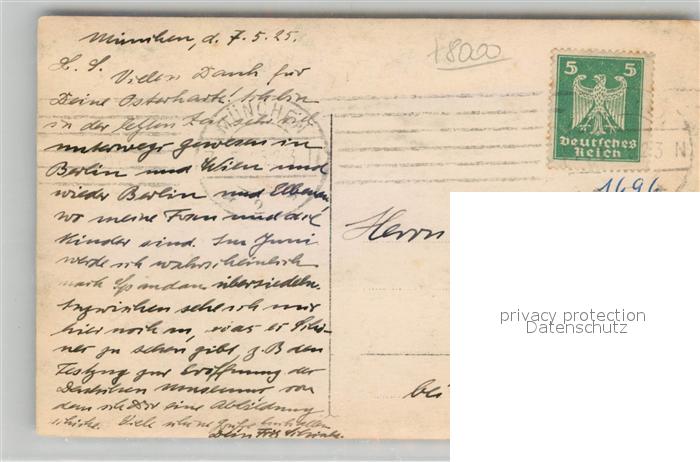 München, d. 7.5.25.
18000
L. S. Vielen Dank für
Deine Osterkarte! Ich bin
in der letzten Zeit sehr viel
unterwegs gewesen in
Berlin und Wien und
wieder Berlin und
wo meine Frau und die
Kinder sind. Im Juni
werde ich wahrscheinlich
nach Spandau übersiedeln.
Inzwischen sehe ich mir
hier noch an, was es Schö-
ner zu sehen gibt, z. B den
Festzug zur Eröffnung der
Deutschen Museums von
dem ich Dir eine Abbildung
schicke. Viele schöne Grüße
Dein Fritz
MÜNCHEN
5 5
Deutsches
Reich
1494
Herrn
bei
privacy protection
Datenschutz